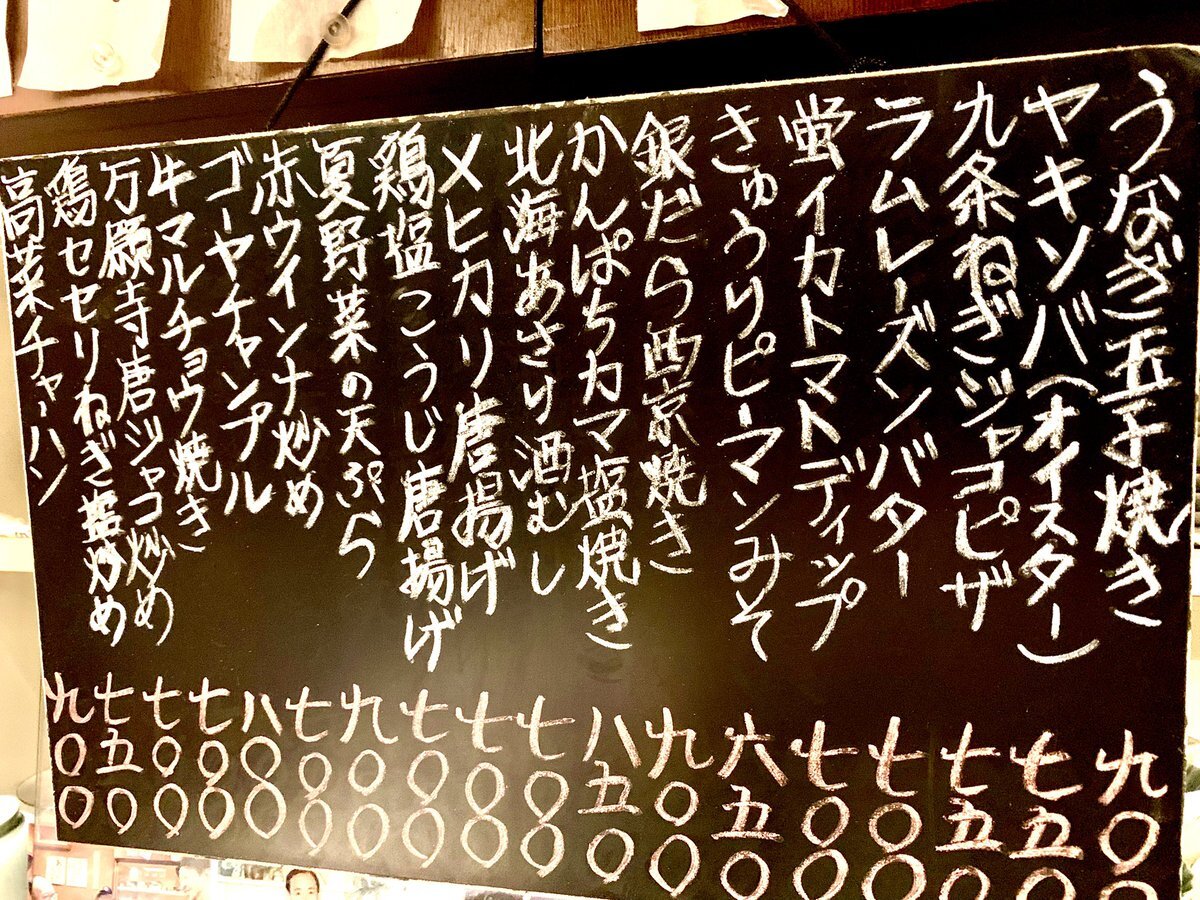 うなぎ玉子焼き 九〇〇
ヤキソバ(オイスター) 七五〇
九条ねぎジャコピザ 七五〇
ラムレーズンバター 七〇〇
蛍イカトマトディップ 七〇〇
きゅうりピーマンみそ 六五〇
銀だら西京焼き 九〇〇
かんぱちカマ塩焼き 八五〇
北海あさり酒むし 七〇〇
メヒカリ唐揚げ 七〇〇
鶏塩こうじ唐揚げ 七〇〇
夏野菜の天ぷら 九〇〇
赤ウインナ炒め 七〇〇
ゴーヤチャンプル 八〇〇
牛マルチョウ焼き 七〇〇
万願寺唐ジャコ炒め 七〇〇
鶏セセリねぎ塩炒め 七五〇
高菜チャーハン 九〇〇